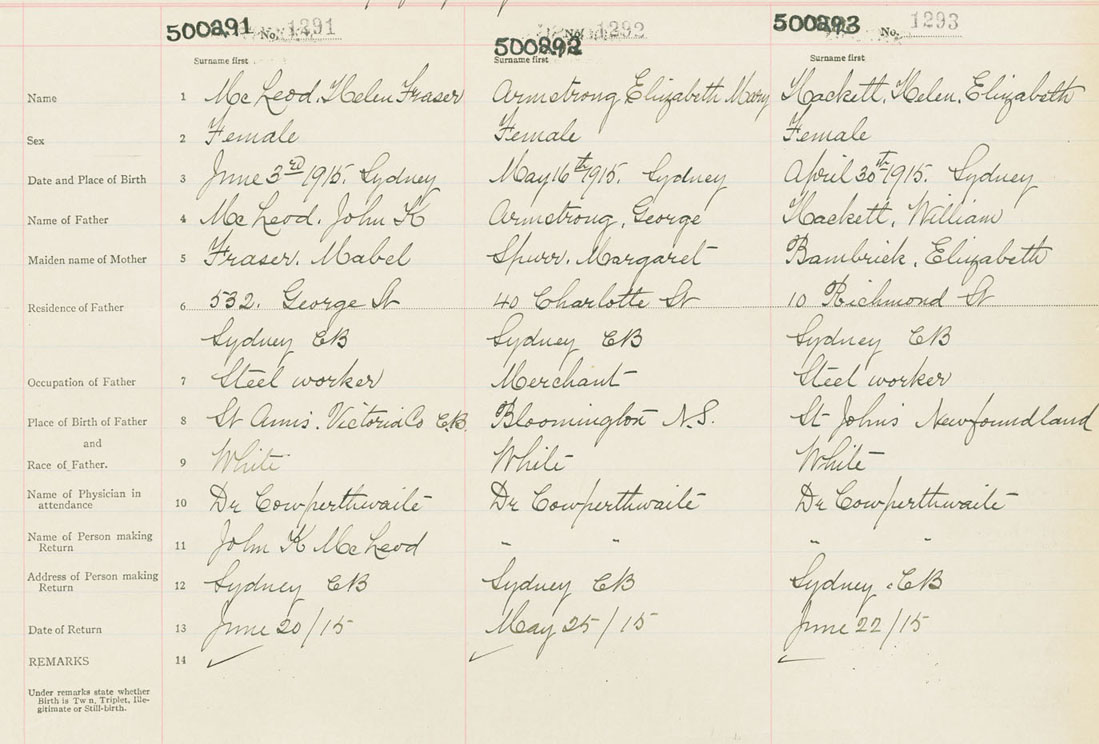 500291 No. 1291 500292 No. 1292 500293 No. 1293
Surname first Surname first Surname first
Name 1 McLeod, Helen Fraser Armstrong Elizabeth Mary Hackett, Helen, Elizabeth
Sex 2 Female Female Female
Date and Place of Birth 3 June 3rd 1915. Sydney May 16th 1915. Sydney April 30th 1915. Sydney
Name of Father 4 McLeod. John K Armstrong, George Hackett, William
Maiden name of Mother 5 Fraser. Mabel Spurr. Margaret Bambrick, Elizabeth
Residence of Father 6 532. George St 40 Charlotte St 10 Richmond St
Sydney CB Sydney CB Sydney CB
Occupation of Father 7 Steel worker Merchant Steel worker
Place of Birth of Father 8 St Anns. Victoria Co C.B. Bloomington N.S. St Johns Newfoundland
and
Race of Father. 9 White White White
Name of Physician in
attendance 10 Dr Cowperthwaite Dr Cowperthwaite Dr Cowperthwaite
Name of Person making
Return 11 John K McLeod " " " "
Address of Person making
Return 12 Sydney CB Sydney CB Sydney. CB
Date of Return 13 June 20/15 May 25/15 June 22/15
REMARKS 14 ✓ ✓ ✓
Under remarks state whether
Birth is Tw n, Triplet, Ille-
gitimate or Still-birth.